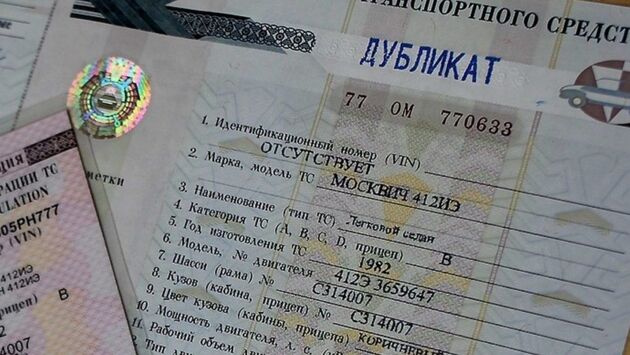 РАНСПОРТНОГО СРЕДСТ
ДУБЛИКАТ
77 ОМ 770633
1. Идентификационный номер (VIN)
ОТСУТСТВУЕТ
2. Марка, модель ТС МОСКВИЧ 412ИЭ
3. Наименование (тип ТС) Легковой седан
4. Категория ТС (А, В, С, D, прицеп) В
5. Год изготовления ТС 1982
6. Модель, № двигателя 412Э 3659647
7. Шасси (рама) № С314007
8. Кузов (кабина, прицеп) № С314007
9. Цвет кузова (кабины, прицепа) КОРИЧНЕВЫЙ
10. Мощность двигателя, л. с.
11. Рабочий объем
Тип
метки
ция
РАЦИИ ТС
ULATION
05РН777
(VIN)
412ИЭ
412ИЭ
прицеп) В
14007